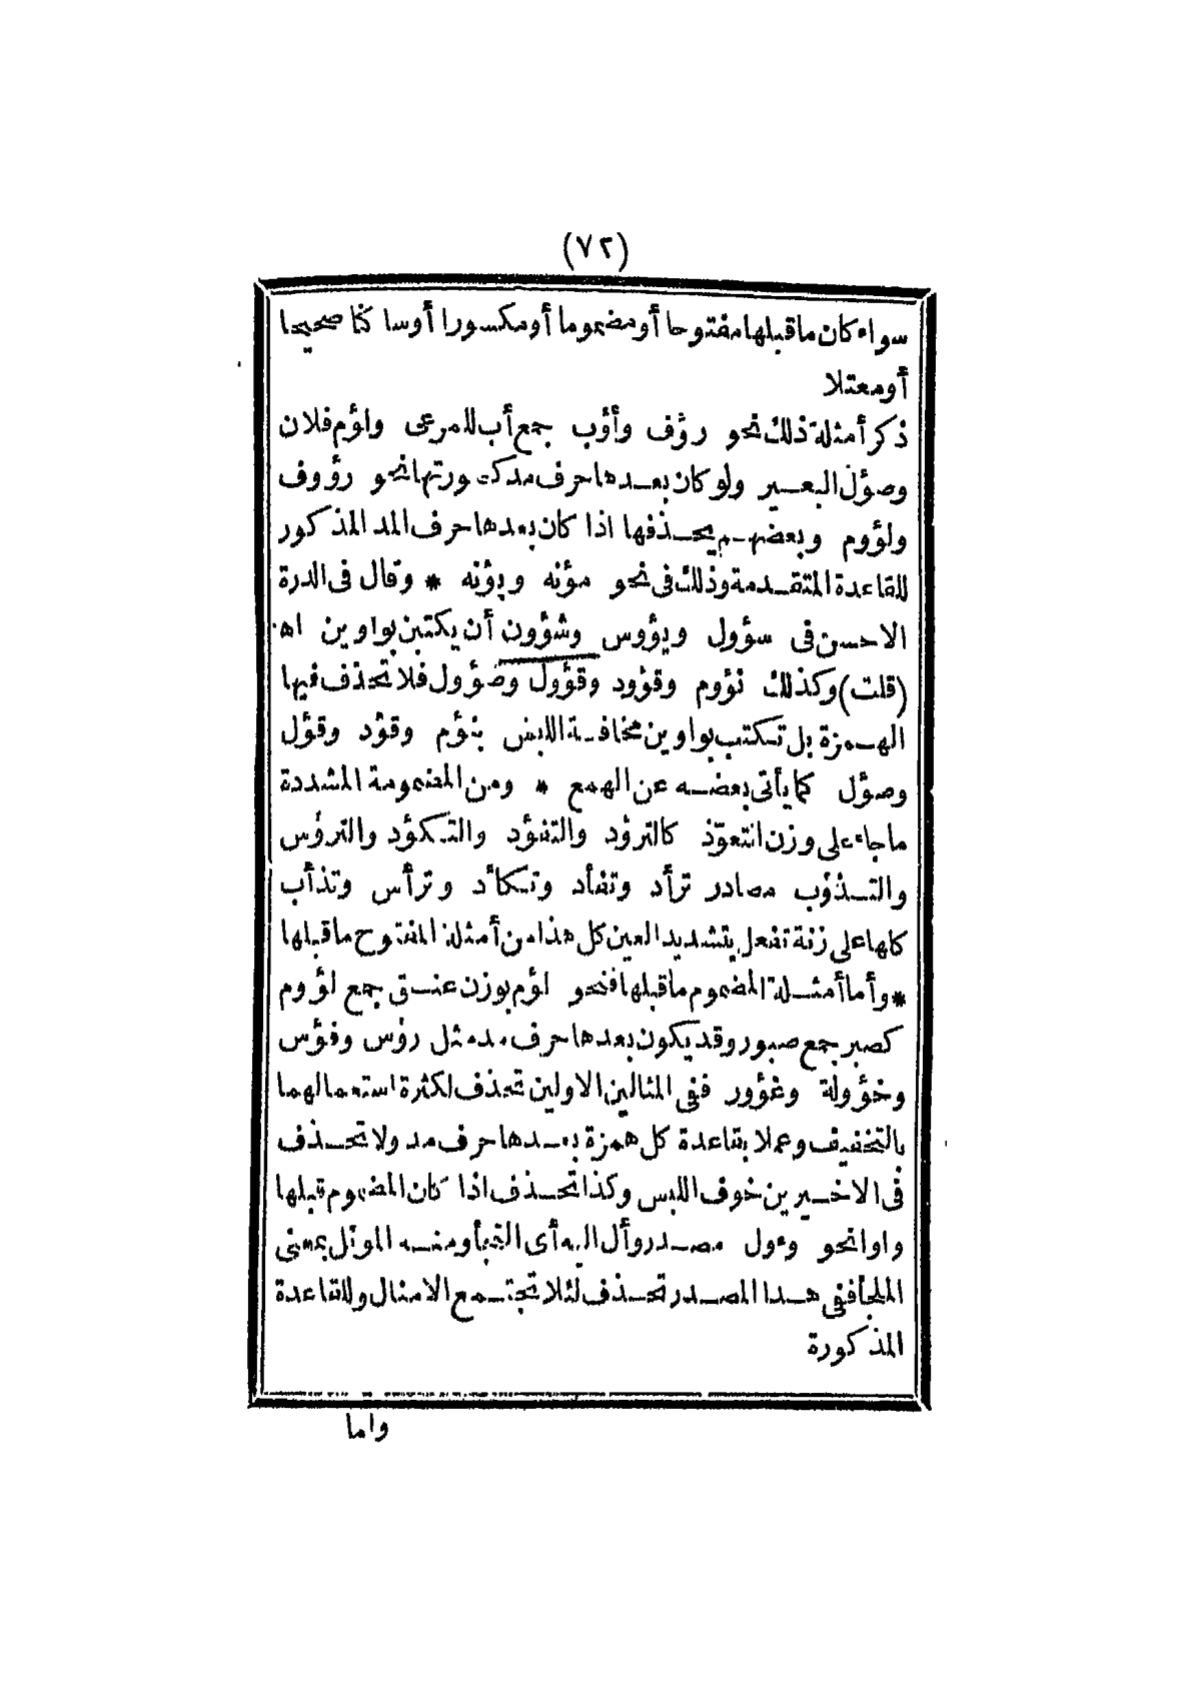 (٧٢)
سواء كان ما قبلها مفتوحا أو مضموما أو مكسورا أو ساكنا صحيحا
أو معتلا
ذكر أمثلة ذلك نحو رؤف وأؤب جمع أب للمرعى ولؤم فلان
وصؤل البعير ولو كان بعدها حرف مد كصورتها نحو رؤوف
ولؤوم وبعضهم يحذفها اذا كان بعدها حرف المد المذكور
للقاعدة المتقدمة وذلك فى نحو مؤنه ويؤنه * وقال فى الدرة
الاحسن فى سؤول ويؤوس وشؤون أن يكتبن بواوين اه
(قلت) وكذلك نؤوم وقؤود وقؤول وصؤول فلا تحذف فيها
الهمزة بل تكتب بواوين مخافة اللبس بنؤم وقؤد وقؤل
وصؤل كما يأتى بعضه عن الهمع * ومن المضمومة المشددة
ما جاء على وزن التعوّذ كالترؤد والتفؤد والتكؤد والترؤس
والتذؤب مصادر ترأد وتفأد وتكأد وترأس وتذأب
كلها على زنة تفعل بتشديد العين كل هذا من أمثلة المفتوح ما قبلها
* وأما أمثلة المضموم ما قبلها فنحو لؤم بوزن عنق جمع لؤوم
كصبر جمع صبور وقد يكون بعدها حرف مد مثل رؤس وفؤس
وخؤولة وغؤور ففى المثالين الاولين تحذف لكثرة استعمالهما
بالتخفيف وعملا بقاعدة كل همزة بعدها حرف مد ولا تحذف
فى الاخيرين خوف اللبس وكذا تحذف اذا كان المضموم قبلها
واوا نحو وءول مصدر وأل اليه أى التجأ ومنه الموئل بمعنى
الملجأ ففى هذا المصدر تحذف لئلا تجتمع الامثال وللقاعدة
المذكورة
واما